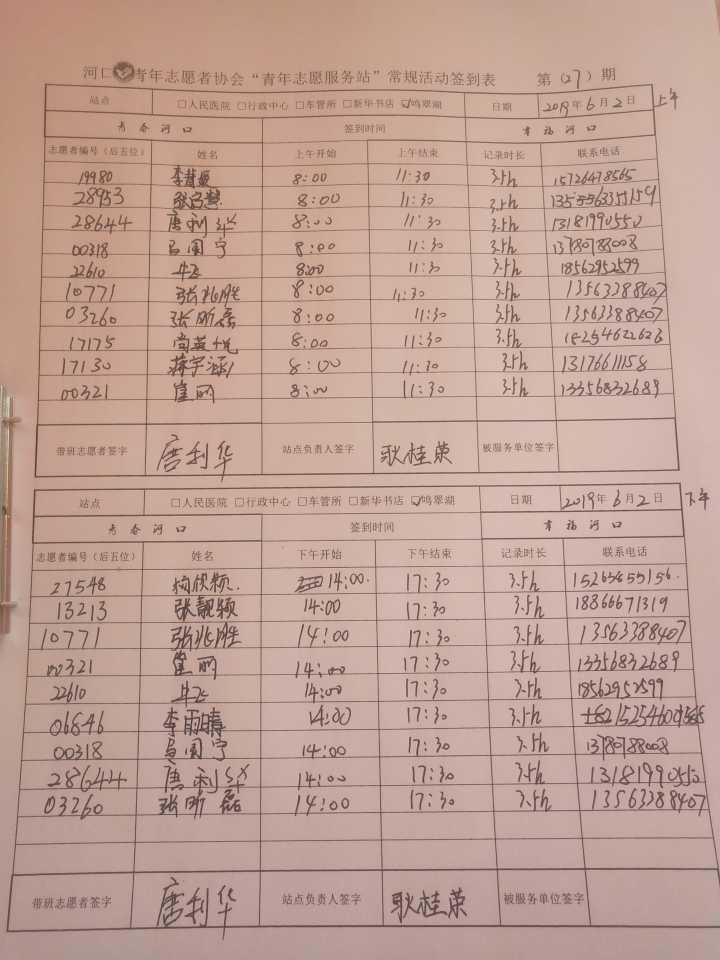 河口青年志愿者协会“青年志愿服务站”常规活动签到表 第（27）期
站点 □人民医院 □行政中心 □车管所 □新华书店 ☑鸣翠湖 日期 2019年6月2日 上午
青春河口 签到时间 幸福河口
志愿者编号（后五位） 姓名 上午开始 上午结束 记录时长 联系电话
19980 8:00 11:30 3.5h 15726478565
28953 8:00 11:30 3.5h
28644 唐利华 8:00 11:30 3.5h 13181990550
00318 吕国宁 8:00 11:30 3.5h 13780788008
22610 牛飞 8:00 11:30 3.5h 18562952599
10771 张兆胜 8:00 11:30 3.5h 13563388407
03260 张昕磊 8:00 11:30 3.5h 13563388407
17175 尚英悦 8:00 11:30 3.5h 15254622623
17130 蒋宇涵 8:00 11:30 3.5h 13176611158
00321 崔丽 8:00 11:30 3.5h 13356832689
带班志愿者签字 唐利华 站点负责人签字 耿桂荣 被服务单位签字
站点 □人民医院 □行政中心 □车管所 □新华书店 ☑鸣翠湖 日期 2019年6月2日 下午
青春河口 签到时间 幸福河口
志愿者编号（后五位） 姓名 下午开始 下午结束 记录时长 联系电话
27548 14:00 17:30 3.5h
13213 张靓颖 14:00 17:30 3.5h 18866671319
10771 张兆胜 14:00 17:30 3.5h 13563388407
00321 崔丽 14:00 17:30 3.5h 13356832689
22610 牛飞 14:00 17:30 3.5h 18562952599
06846 李雨晴 14:00 17:30 3.5h
00318 吕国宁 14:00 17:30 3.5h 13780788008
28644 唐利华 14:00 17:30 3.5h 13181990550
03260 张昕磊 14:00 17:30 3.5h 13563388407
带班志愿者签字 唐利华 站点负责人签字 耿桂荣 被服务单位签字